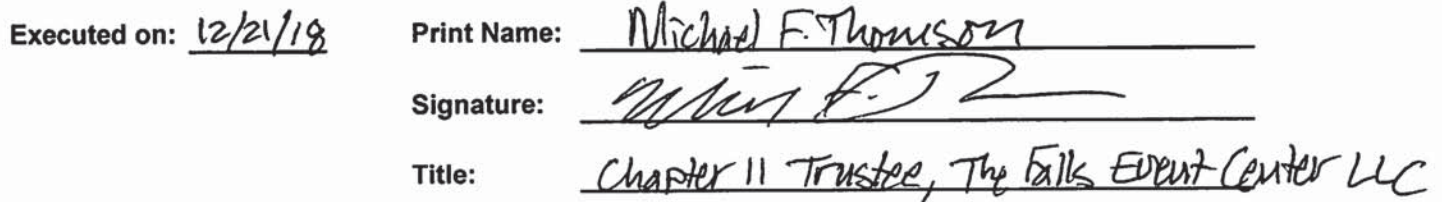 Executed on: 12/21/18 Print Name: Michael F. Thomson
Signature:
Title: Chapter 11 Trustee, The Falls Event Center LLC